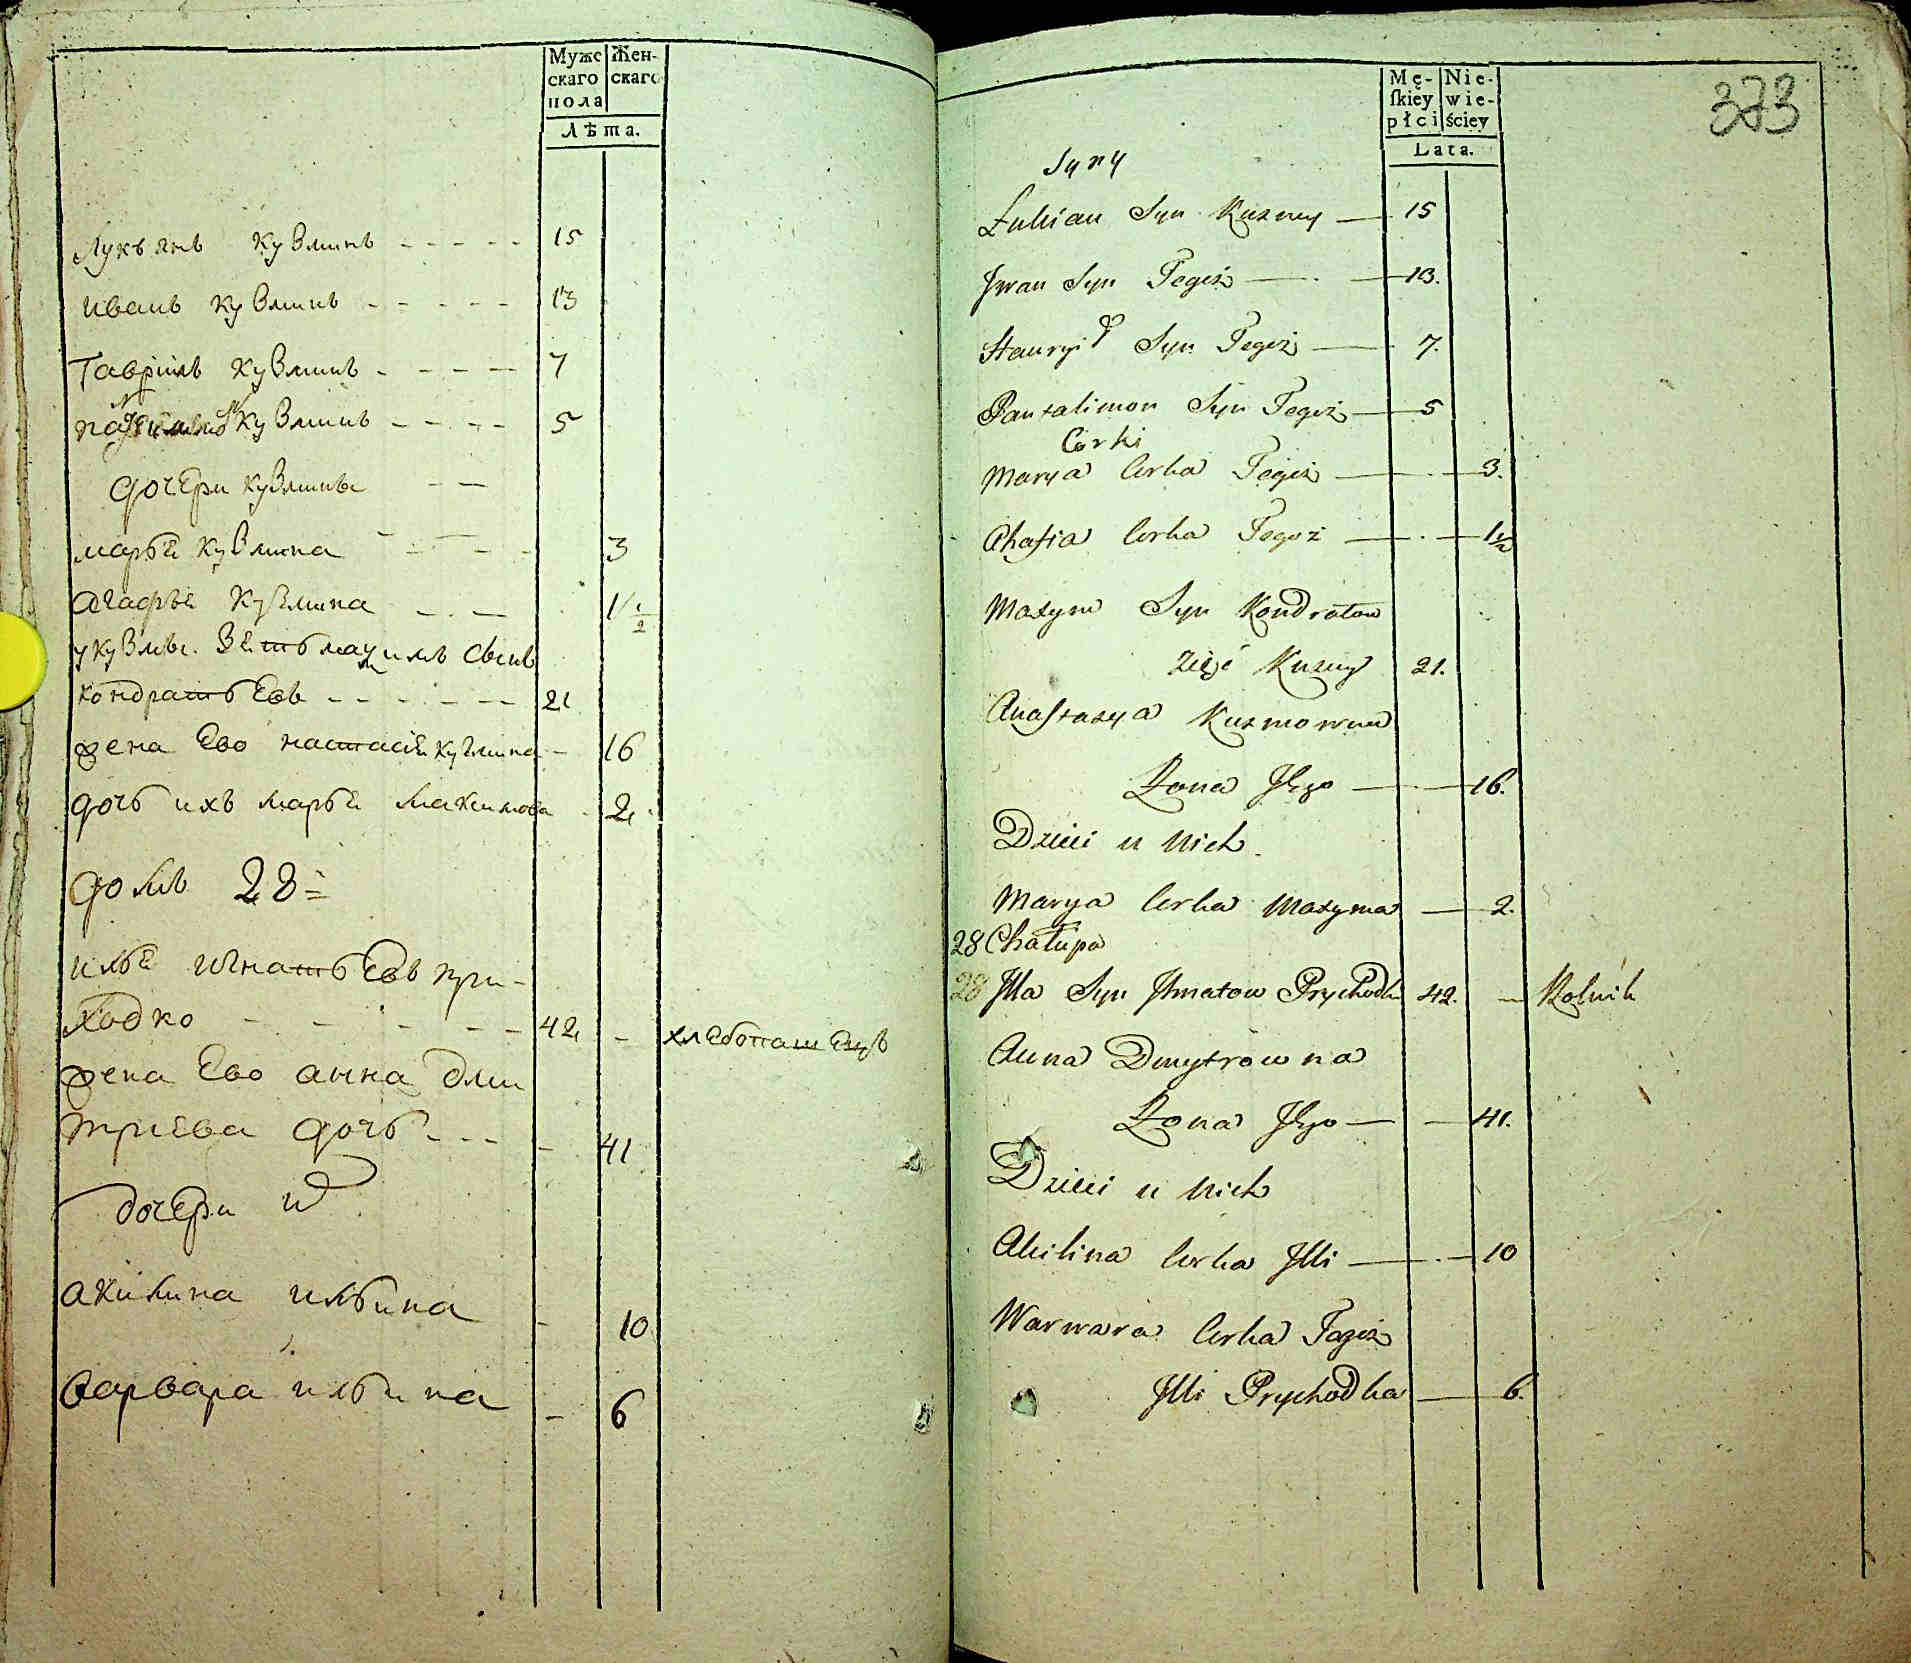 Муже
скаго
пола
Жен-
скаго
Лѣта.
Лукъянъ кузминъ - - - - - 15
иванъ кузминъ - - - - - 13
Гаврiилъ кузминъ - - - - - 7
кузминъ - - - - 5
дочери кузмины - -
марья кузмина - - - - 3
агафья кузмина - - - 1 1/2
у кузмы зеть максимъ сынъ
кондратьевъ - - - - - - 21
жена Ево настасья кузмина - 16
дочь ихъ марья максимова - 2
домъ 28
илья игнатьевъ при-
ходко - - - - - 42 - хлебопашецъ
жена Ево анна дми
триева дочь - - - - 41
дочери и
акилина ильина - 10
варвара ильина - 6
373
Mę-
ſkiey
płci
Nie-
wie-
ściey
Lata.
Syny
Łukian Syn Kuzmy — 15
Jwan Syn Tegoż — 13.
Hauryił Syn Tegoż — 7.
Pantalimon Syn Tegoż — 5
Corki
Marya Corka Tegoż — 3.
Ahafia Corka Tegoż — 1 1/2
Maxym Syn Kondratow
Zięć Kuzmy 21.
Anastazya Kuzmowna
Żona Jego — 16.
Dzieci u nich
Marya Corka Maxyma — 2.
28 Chałupa
28 Jlla Syn Jhnatow Prychodko 42. — Rolnik
Anna Dmytrowna
Żona Jego — 41.
Dzieci u nich
Akilina Corka Jlli — 10
Warwara Corka Tegoż
Jlli Prychodka — 6.